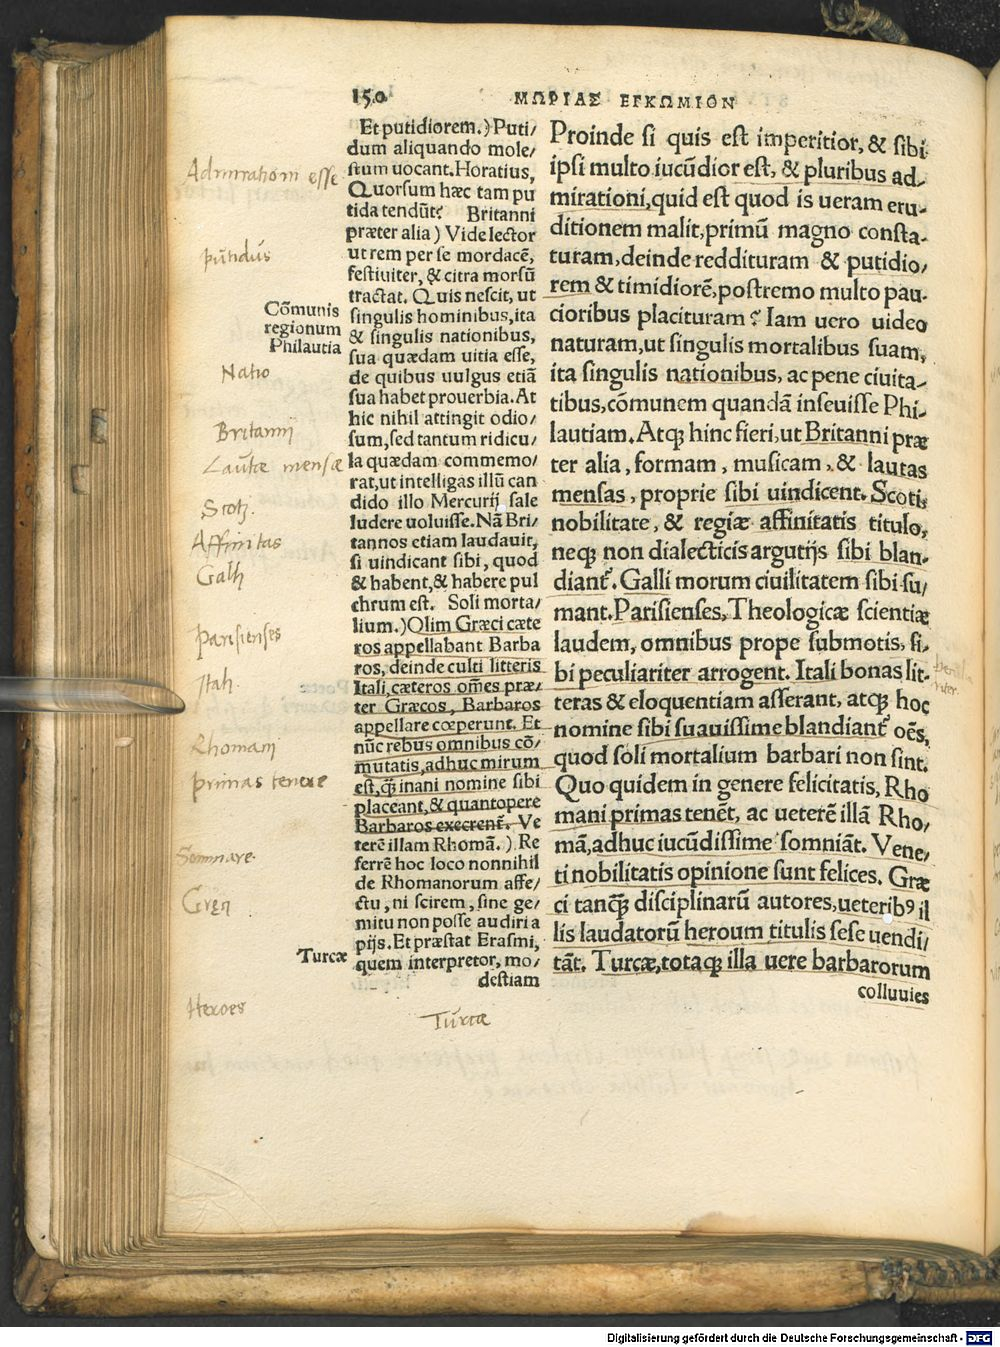 150
ΜΩΡΙΑΣ ΕΓΚΩΜΙΟΝ
Et putidiorem.) Puti/
dum aliquando mole/
stum uocant. Horatius,
Quorsum hæc tam pu
tida tendūt? Britanni
præter alia) Vide lector
ut rem per se mordacē,
festiuiter, & citra morsū
tractat. Quis nescit, ut
singulis hominibus, ita
& singulis nationibus,
sua quædam uitia esse,
de quibus uulgus etiā
sua habet prouerbia. At
hic nihil attingit odio/
sum, sed tantum ridicu/
la quædam commemo/
rat, ut intelligas illū can
dido illo Mercurij sale
ludere uoluisse. Nā Bri/
tannos etiam laudauit,
si uindicant sibi, quod
& habent, & habere pul
chrum est. Soli morta/
lium.) Olim Græci cæte
ros appellabant Barba
ros, deinde culti litteris
Itali, cæteros om̄es præ/
ter Græcos, Barbaros
appellare cœperunt. Et
nūc rebus omnibus cō/
mutatis, adhuc mirum
est, q̄ inani nomine sibi
placeant, & quantopere
Barbaros execrent᷑. Ve
terē illam Rhomā.) Re
ferrē hoc loco nonnihil
de Rhomanorum affe/
ctu, ni scirem, sine ge/
mitu non posse audiri a
pijs. Et præstat Erasmi,
quem interpretor, mo/
destiam
Proinde si quis est imperitior, & sibi
ipsi multo iucūdior est, & pluribus ad-
mirationi, quid est quod is ueram eru-
ditionem malit, primū magno consta-
turam, deinde reddituram & putidio/
rem & timidiorē, postremo multo pau-
cioribus placituram? Iam uero uideo
naturam, ut singulis mortalibus suam,
ita singulis nationibus, ac pene ciuita-
tibus, cōmunem quandā inseuisse Phi-
lautiam. Atq; hinc fieri, ut Britanni præ
ter alia, formam, musicam, & lautas
mensas, proprie sibi uindicent. Scoti,
nobilitate, & regiæ affinitatis titulo,
neq; non dialecticis argutijs sibi blan-
diant᷑. Galli morum ciuilitatem sibi su/
mant. Parisienses, Theologicæ scientiæ
laudem, omnibus prope submotis, si-
bi peculiariter arrogent. Itali bonas lit-
teras & eloquentiam asserant, atq; hoc
nomine sibi suauissime blandiant᷑ oēs,
quod soli mortalium barbari non sint.
Quo quidem in genere felicitatis, Rho
mani primas tenēt, ac ueterē illā Rho/
mā, adhuc iucūdissime somniāt. Vene/
ti nobilitatis opinione sunt felices. Græ
ci tanq̄ disciplinarū autores, ueterib⁹ il
lis laudatorū heroum titulis sese uendi/
tāt. Turcæ, totaq; illa uere barbarorum
colluuies
Admirationi esse
putidus
Cōmunis
regionum
Philautia
Natio
Britanni
Lautæ mensæ
Scoti
Affinitas
Galli
Parisienses
Itali
Rhomani
primas tenere
Somniare
Gręci
Turcæ
Heroes
Turcæ
Digitalisierung gefördert durch die Deutsche Forschungsgemeinschaft - DFG